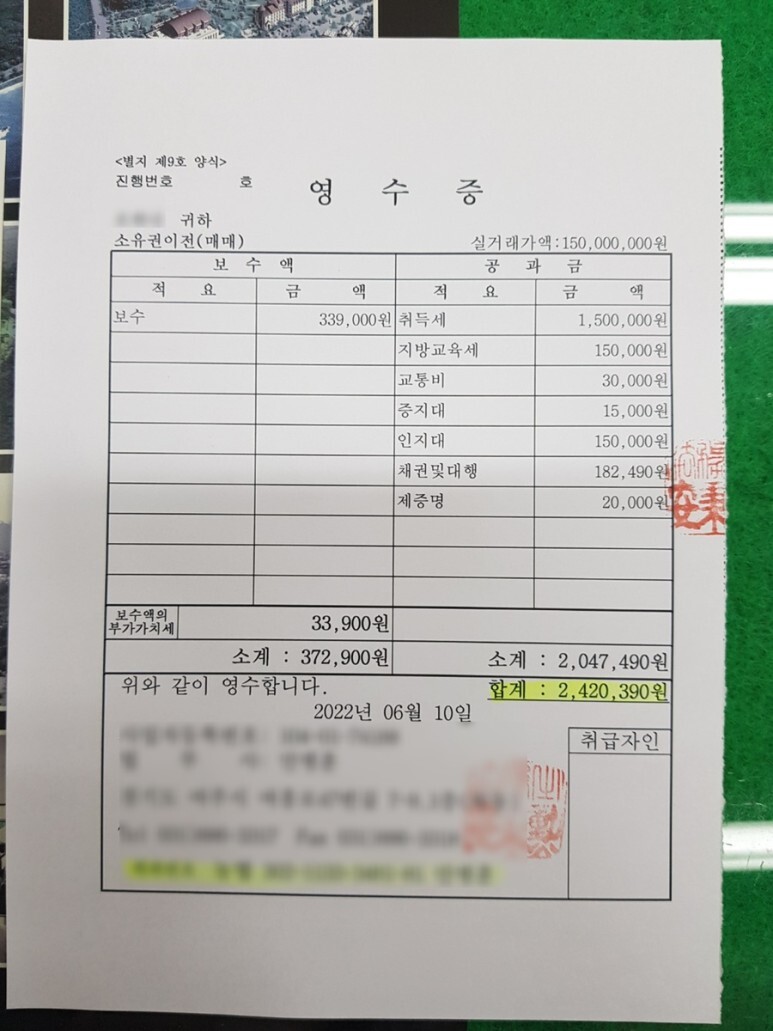 <별지 제9호 양식>
진행번호 호
영 수 증
귀하
소유권이전(매매) 실거래가액:150,000,000원
보 수 액 공 과 금
적 요 금 액 적 요 금 액
보수 339,000원 취득세 1,500,000원
지방교육세 150,000원
교통비 30,000원
증지대 15,000원
인지대 150,000원
채권및대행 182,490원
제증명 20,000원
보수액의
부가가치세 33,900원
소계 : 372,900원 소계 : 2,047,490원
위와 같이 영수합니다. 합계 : 2,420,390원
2022년 06월 10일
취급자인